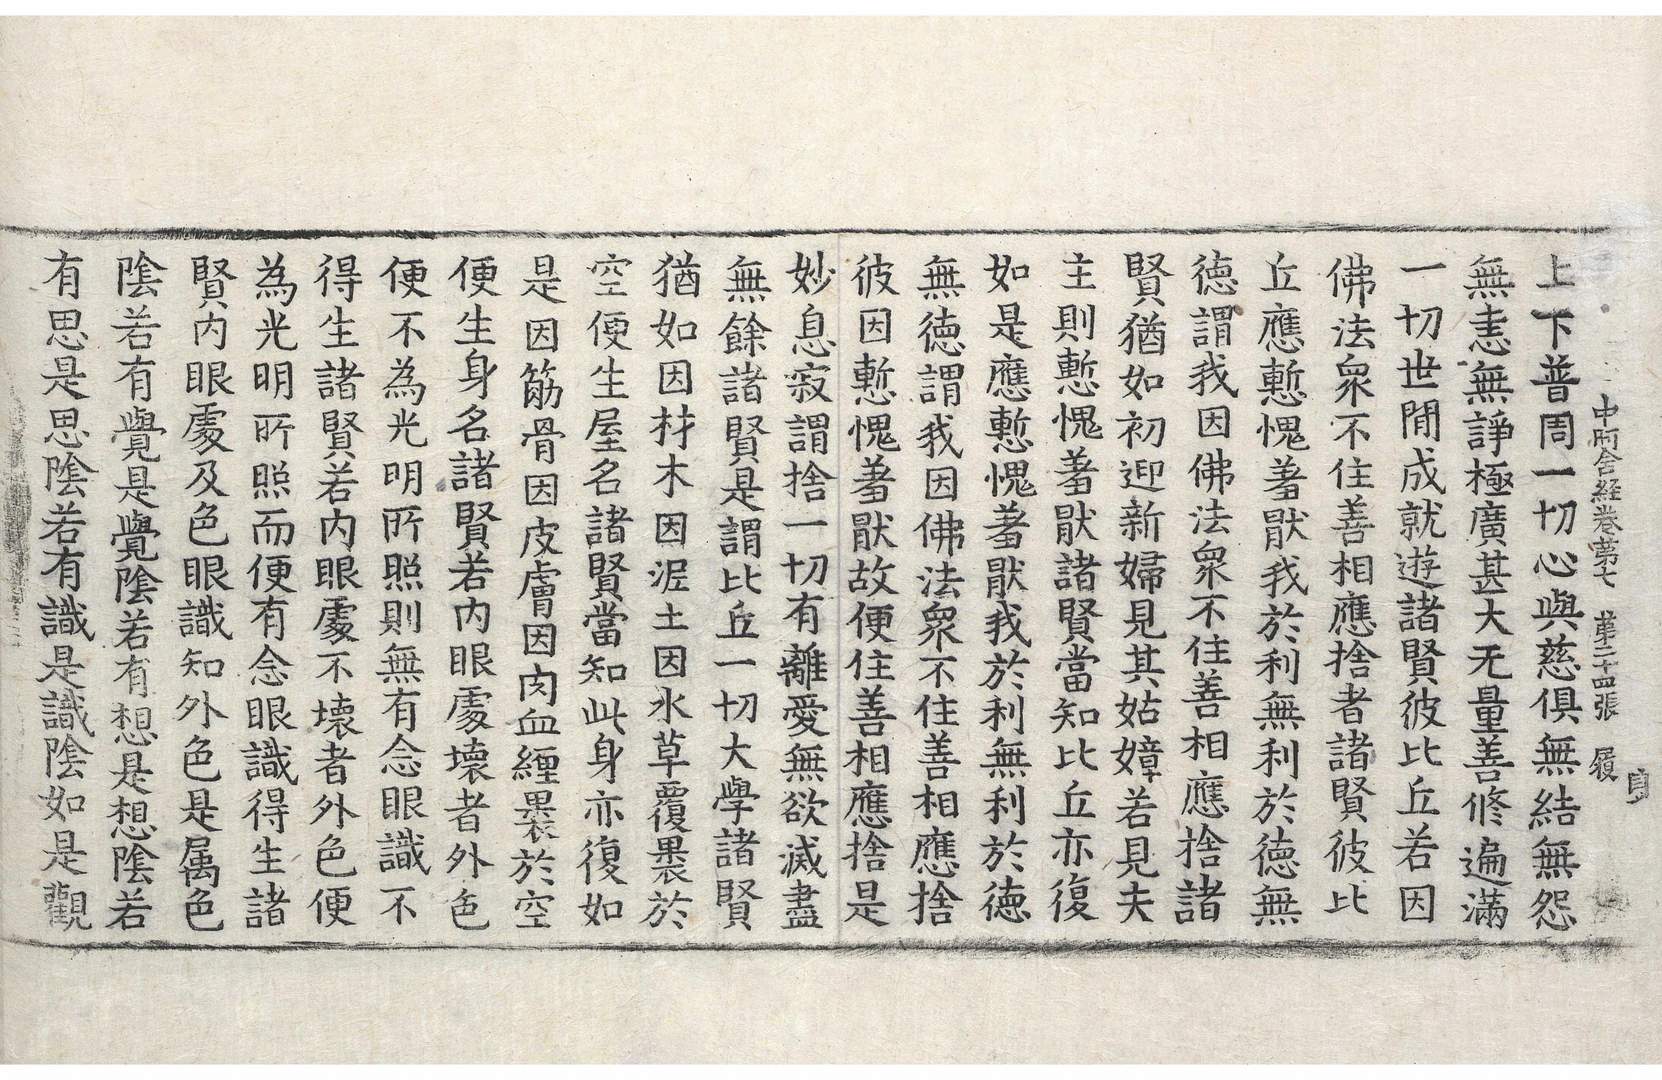 中阿含経卷第七 第二十四張 履
上下普周一切心與慈俱無結無怨
無恚無諍極廣甚大无量善修遍滿
一切世閒成就遊諸賢彼比丘若因
佛法衆不住善相應捨者諸賢彼比
丘應慙愧羞厭我於利無利於德無
德謂我因佛法衆不住善相應捨諸
賢猶如初迎新婦見其姑嫜若見夫
主則慙愧羞厭諸賢當知比丘亦復
如是應慙愧羞厭我於利無利於德
無德謂我因佛法衆不住善相應捨
彼因慙愧羞厭故便住善相應捨是
妙息寂謂捨一切有離愛無欲滅盡
無餘諸賢是謂比丘一切大學諸賢
猶如因材木因泥土因水草覆裹於
空便生屋名諸賢當知此身亦復如
是因筋骨因皮膚因肉血纒裹於空
便生身名諸賢若内眼處壞者外色
便不為光明所照則無有念眼識不
得生諸賢若内眼處不壞者外色便
為光明所照而便有念眼識得生諸
賢内眼處及色眼識知外色是属色
陰若有覺是覺陰若有想是想陰若
有思是思陰若有識是識陰如是觀